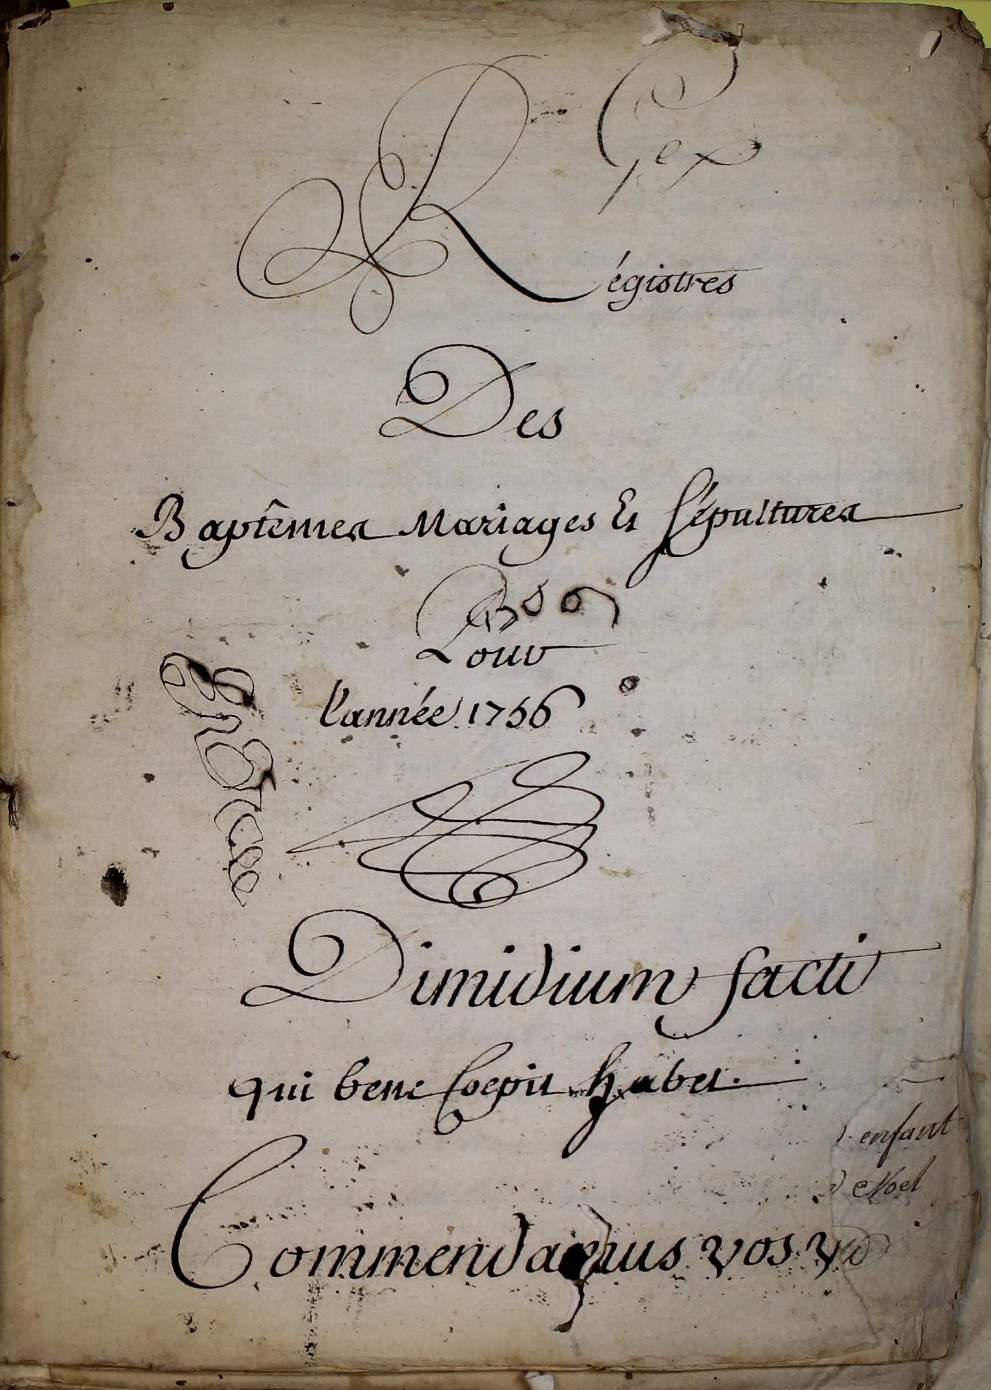 Gex
Régistres
Des
Baptêmes Mariages Et Sépultures
Pour
l'année 1756
Dimidium facti
qui bene Coepit habet.
enfant
Noel
Commendamus vos